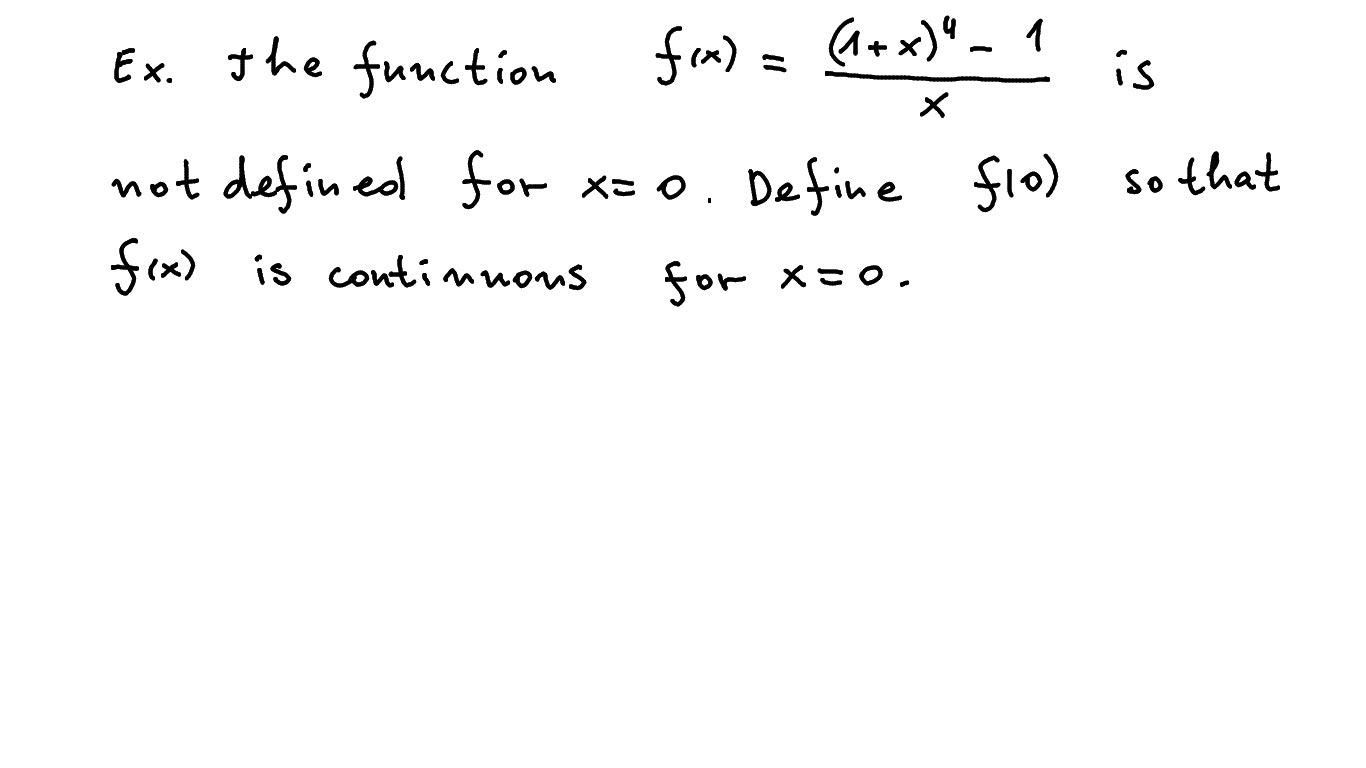 Ex. The function f(x) = ((1+x)^4 - 1)/x is
not defined for x = 0. Define f(0) so that
f(x) is continuous for x = 0.